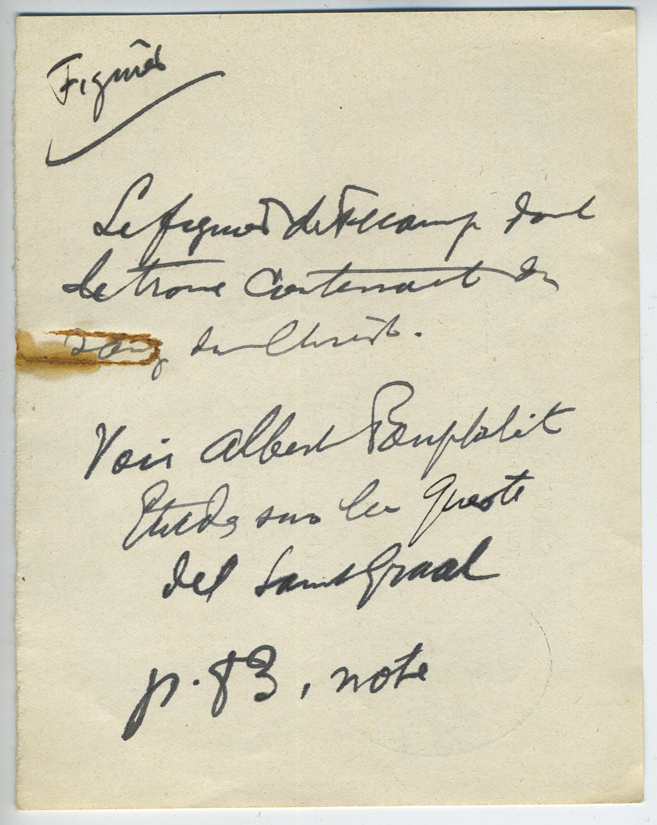 Figuier
Le figuier de Fécamp dont
le tronc contenait du
sang du Christ.
Voir Albert Pauphilet
Etudes sur la Queste
del Saint Graal
p. 83, note